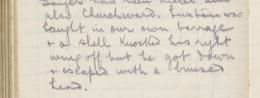 has been killed and
also Churchward. was
caught in our own barrage
& a shell knocked his right
wing off but he got down
& escaped with a bruised
head.